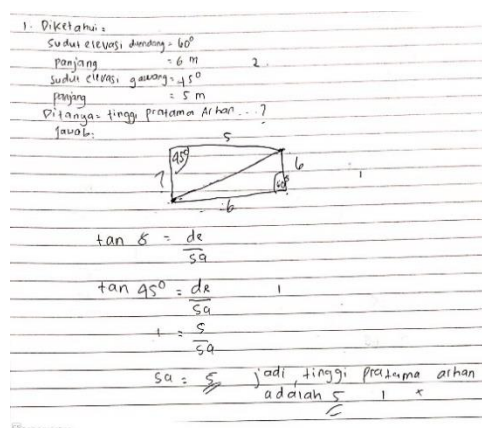 1. Diketahui :
Sudut elevasi ditendang = 60°
panjang = 6 m 2.
Sudut elevasi gawang = 45°
panjang = 5 m
Ditanya = tinggi pratama Arhan...?
Jawab :
5
45°
? 6
60°
6
1
tan 8 = de
sa
tan 45° = de 1
sa
1 = 5
sa
sa = 5 jadi, tinggi pratama arhan
adalah 5 1 x